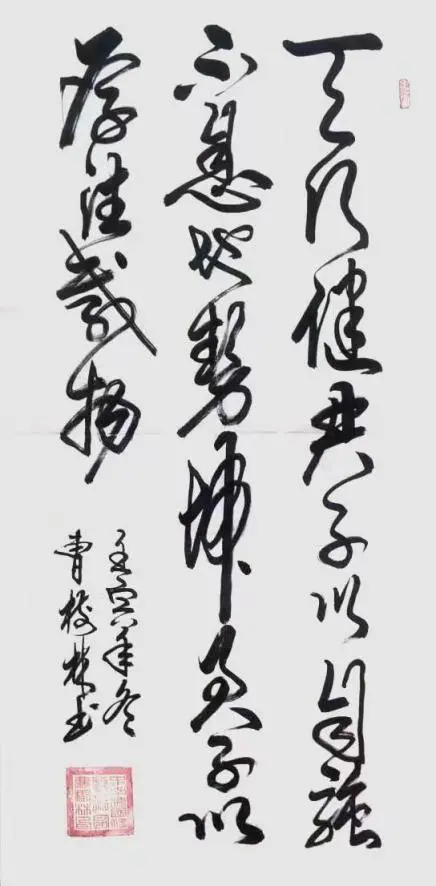 天行健君子以自强
不息地势坤君子以
厚德载物
壬寅年冬
曹树林书